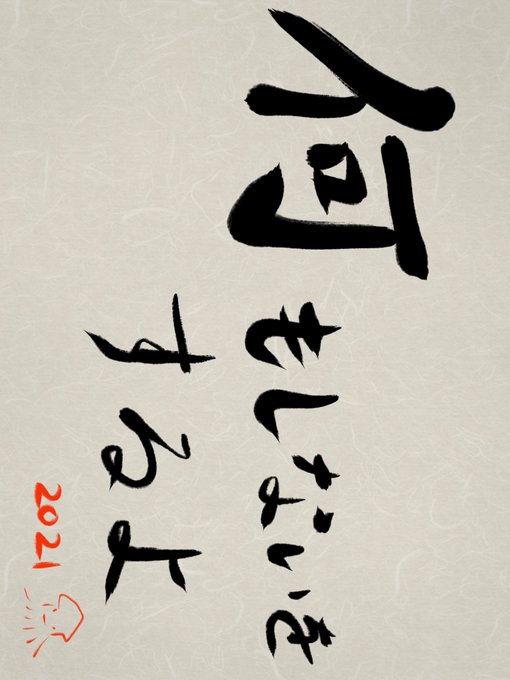 何もしないを
するよ
2021